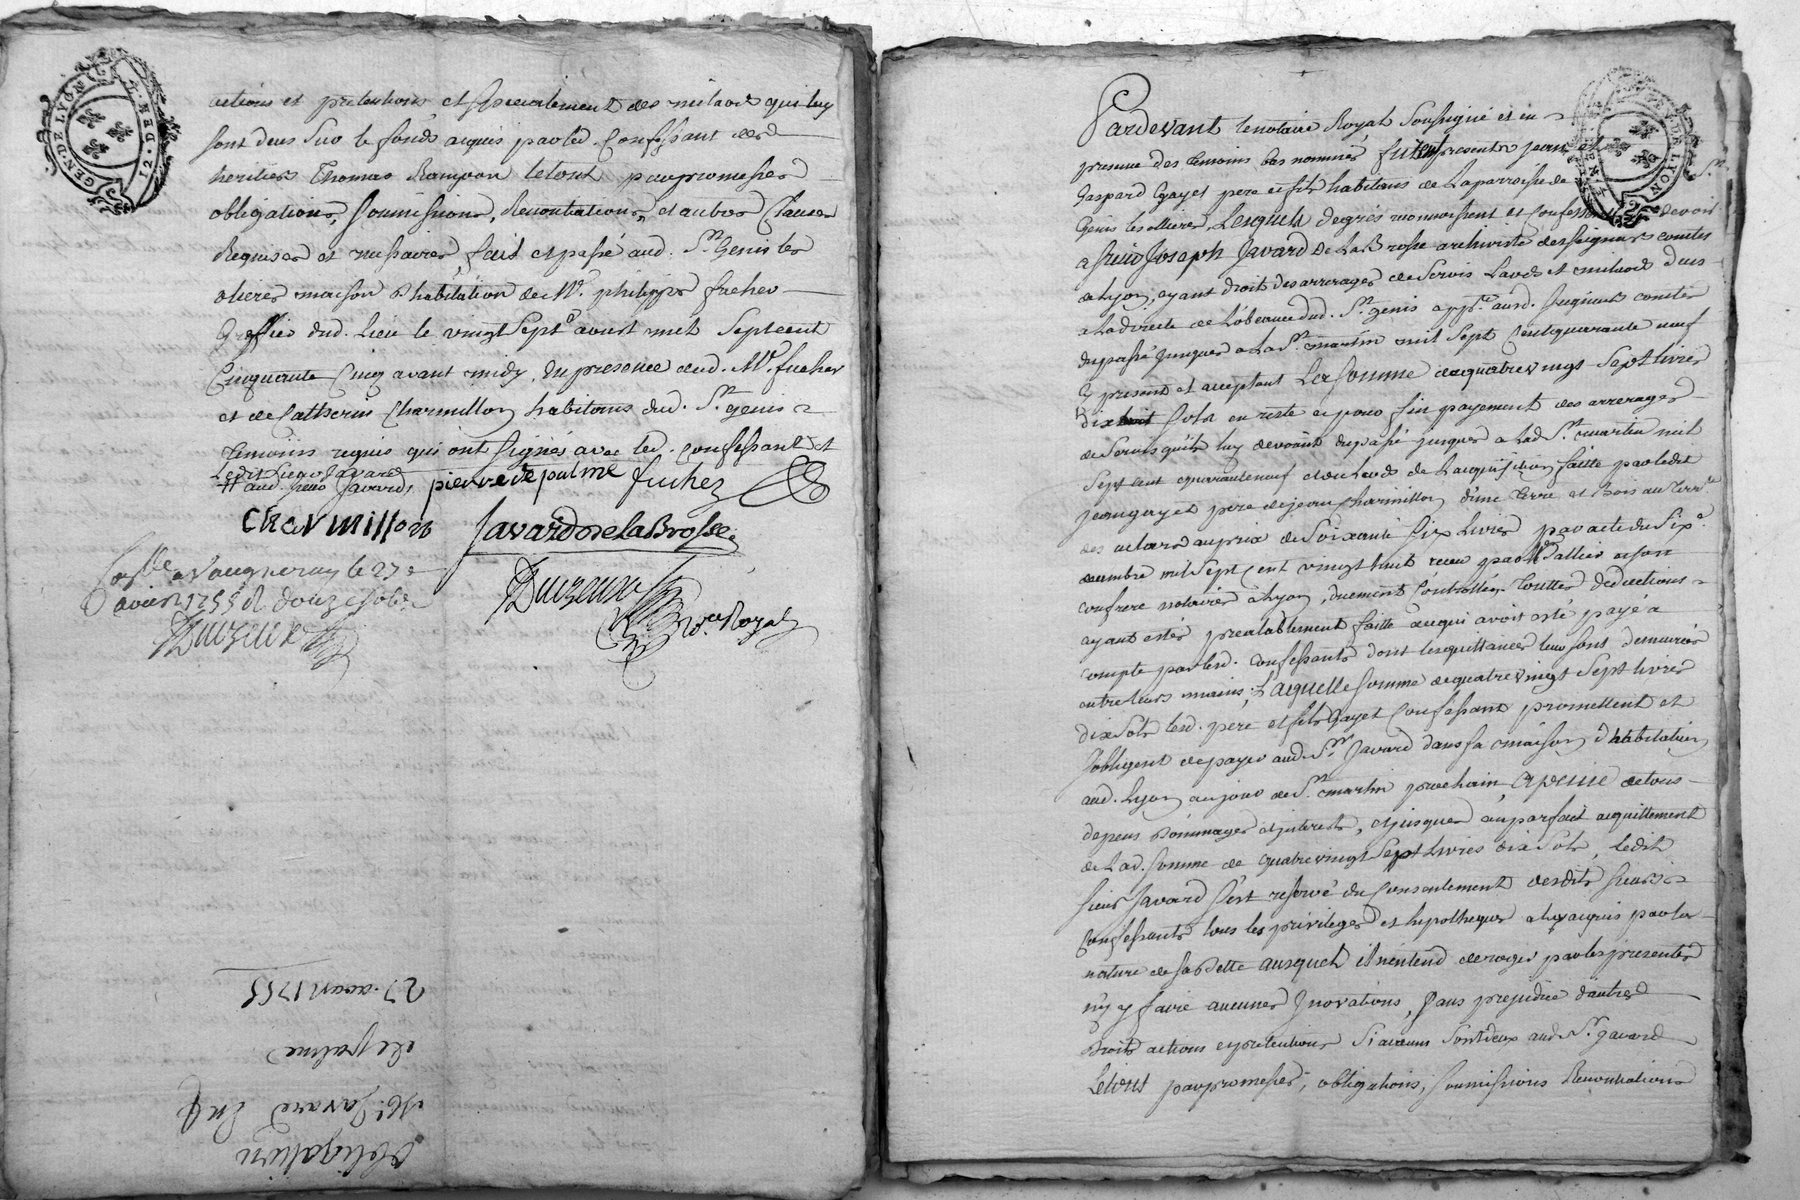 GEN. DE LYON
12. DEN. 4
actions et pretentions et specialement des milaods qui luy
sont deus sur le fonds acquis par led. Confessant desd
heritiers Thomas Rampon le tout par promesses
obligations, Soumissions, Renontiations, et autres Clauses
Requises et nessaires, fait et passé aud. St. Genis les
olieres maison d'habitation de Me. philippe fucher
Greffier dud. lieu le vingt Septe. avril mil Septcent
Cinquante Cinq avant midy, En presence dud. Me. fucher
et de Catherin Charmillon habitans dud. St. genis
temoins requis qui ont signés avec led. Confessant et
ledit Sieur Javard
aud. sieur Javard,
pierre de palme fuchez
Charmillon
Javard de la Brosse
Duizeux
Nre. Royal
Collé a Vaugneray le 27e
avril 1755 R douze sols
Duizeux
27. avril 1755
depalme
Me. Javard
obligation
GEN. DE LYON
Pardevant le notaire Royal Soussigné et en
presence des temoins bas nommés furent presents jean et
Gaspard Gayet pere et fils habitans de la parroisse de St.
Genis les ollieres, Lesquels de grés reconnoissent et confessent devoir
a sieur Joseph Javard de la Brosse archiviste des seigneurs comtes
de Lyon, ayant droit des arrerages de Servis Lauds et milaods deus
a la directe de L'obeance dud. St. genis appte. ausd. seigneurs comtes
du passé jusques a la St. martin mil Sept Cent quarante neuf
Cy present et acceptant La Somme de quatre vings Sept livres
Dix Sols en reste et pour fin payement des arrerages
de Servis qu'ils luy devoient du passé jusques a lad St. martin mil
Sept cent quarante neuf et du Lauds de L'acquisition faitte par ledit
jean gayet pere de jean Charmillon d'une terre et Bois au Terre.
des au prix de Soixante Six Livres par acte du Six
decembre mil Sept Cent vingt huit receu par Me Dallier a son
confrere notaires a Lyon, duement Controllés, touttes deductions
ayant estés prealablement faitte de ce qui avoit esté payé a
compte par lesd. confessants dont les quittances leur sont demeurées
entre leurs mains; Laquelle Somme de quatre vingt Sept livres
dix Sols lesd. pere et fils Gayet Confessant promettent et
s'obligent de payer aud. Sr. Javard dans sa maison d'habitation
aud. Lyon au jour de St. martin prochain, a peine de tous
depens dommages et interests, et jusques au parfait acquittement
de Lad. Somme de quatre vingt Sept Livres dix Sols, ledit
sieur Javard s'est reservé du Consentement desdits sieurs
Confessants tous les privileges et hypotheques a luy acquis par la
nature de sa Dette ausquels il n'entend deroger par les presentes
n'y y faire aucunes Inovations, Sans prejudice d'autres
Droits actions et pretentions Si aucuns sont deux aud Sr. Javard
Le tout par promesses, obligations, soumissions Renontiations